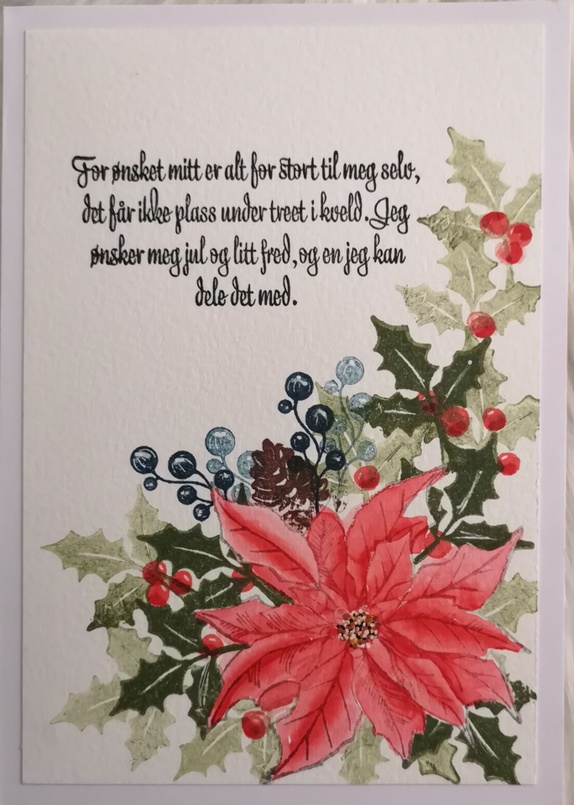 For ønsket mitt er alt for stort til meg selv,
det får ikke plass under treet i kveld. Jeg
ønsker meg jul og litt fred, og en jeg kan
dele det med.